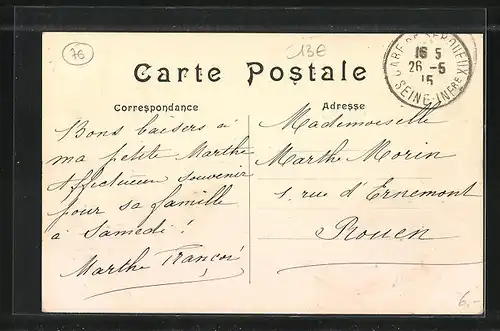 76
13€
Carte Postale
Correspondance
Adresse
GARE DE SERQUEUX
16 5
26 -5
15
SEINE-INFRE
Bons baisers à
ma petite Marthe
Affectueux souvenir
pour sa famille
à Samedi !
Marthe
Mademoiselle
Marthe Morin
1. rue d'Ernemont
Rouen
6.-